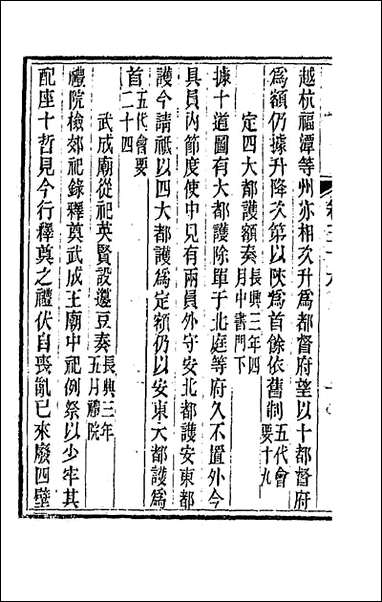 越杭福潭等州亦相次升爲都督府望以十都督府
爲額仍據升降次第以陝爲首餘依舊制五代會要十九
定四大都護額奏長興三年四月中書門下
據十道圖有大都護除單于北庭等府久不置外今
具員內節度使中見有兩員外守安北都護安東都
護今請祇以四大都護爲定額仍以安東大都護爲
首五代會要二十四
武成廟從祀英賢設籩豆奏長興三年五月禮院
禮院檢郊祀錄釋奠武成王廟中祀例祭以少牢其
配座十哲見今行釋奠之禮伏自喪亂已來廢四壁